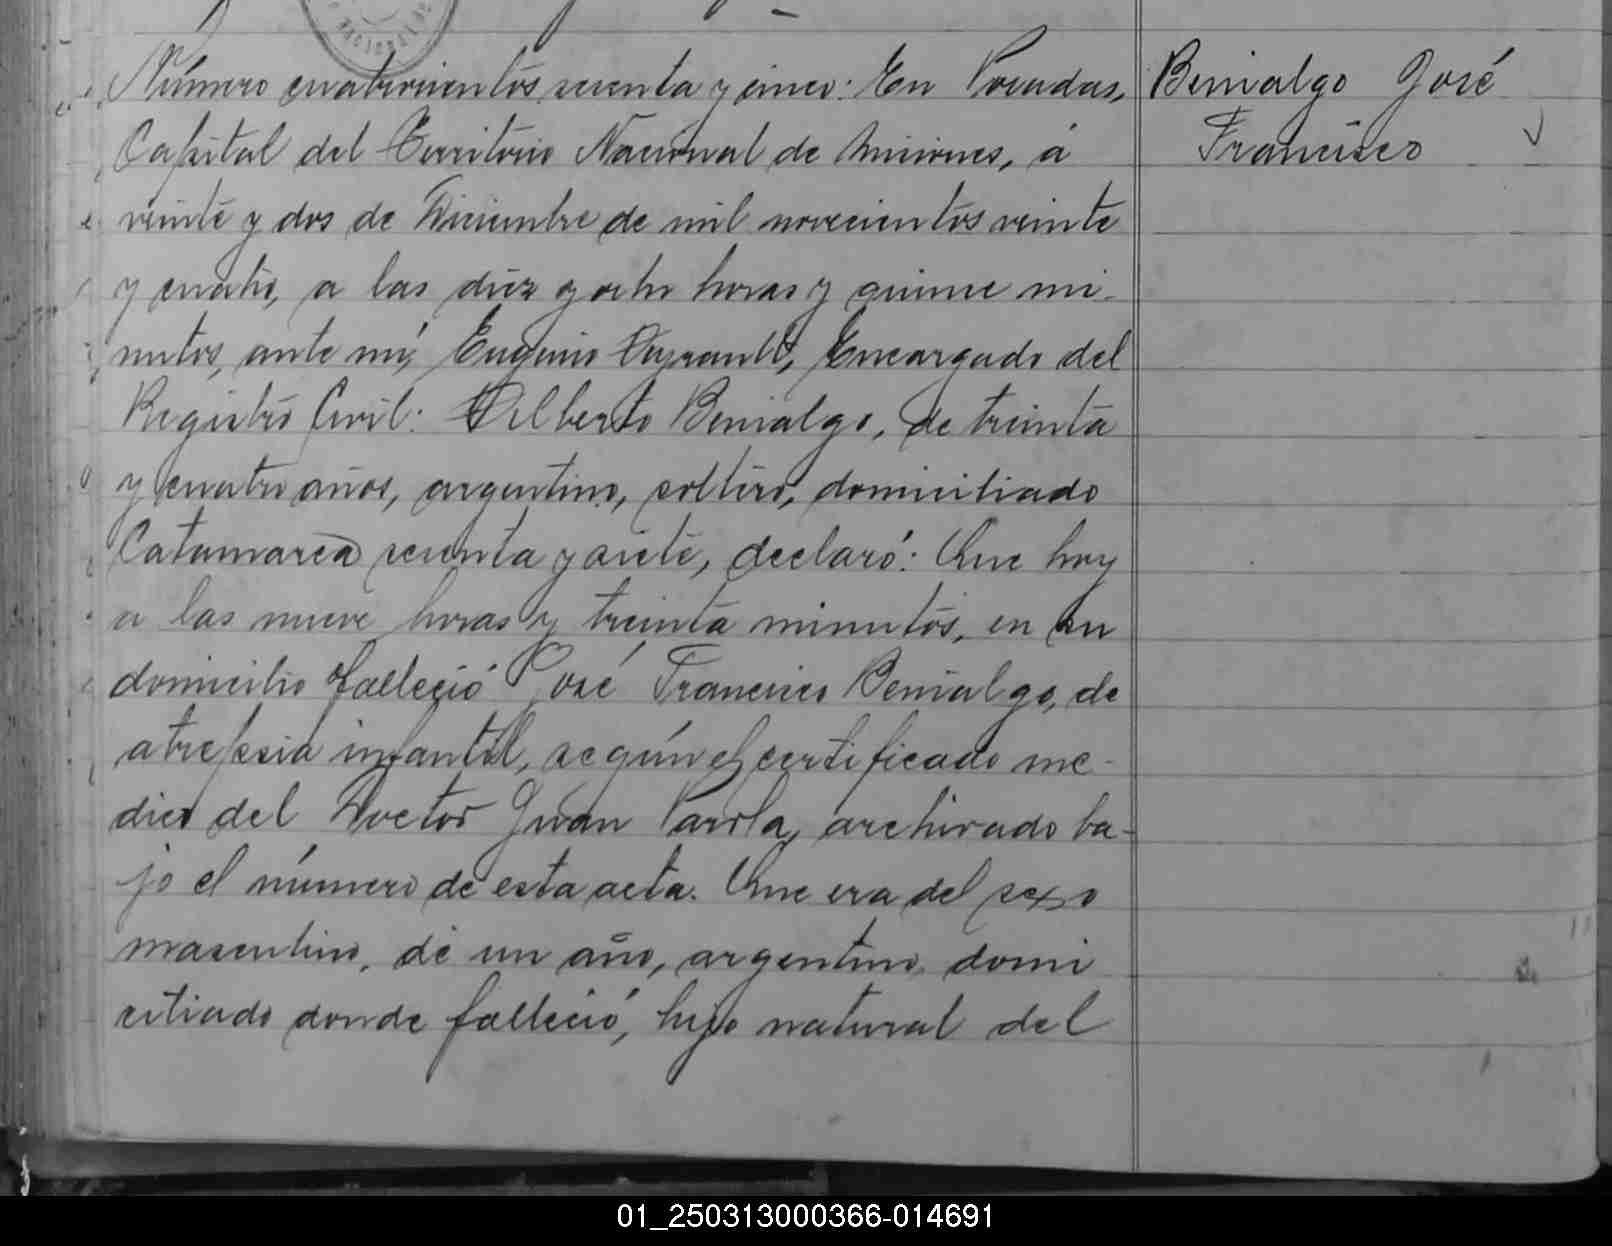 Número cuatrocientos sesenta y cinco: En Posadas,
Capital del Território Nacional de Misiones, á
veinte y dos de Diciembre de mil novecientos veinte
y cuatro, a las diez y ocho horas y quince mi-
nutos, ante mí, Eugenio Encargado del
Registro Civil: Dilberto Benialgo, de treinta
y cuatro años, argentino, soltero, domiciliado
Catamarca sesenta y siete, declaró: Que hoy
a las nueve horas y treinta minutos, en su
domicilio falleció José Francisco Benialgo, de
atrepsia infantil, según el certificado me-
dico del Doctor Juan Parola, archivado ba-
jo el número de esta acta. Que era del sexo
masculino, de un año, argentino, domi
ciliado donde falleció, hijo natural del
Benialgo José
Francisco
NACIONAL DE
01_250313000366-014691